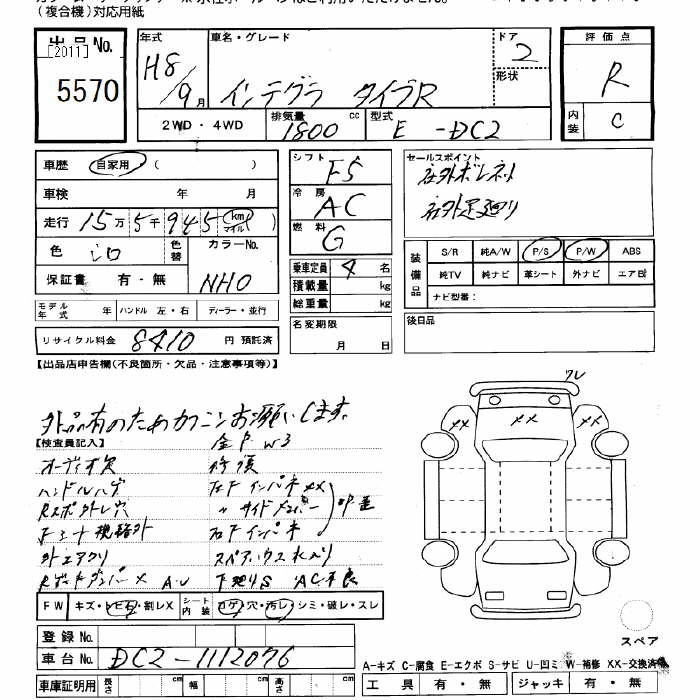 (複合機)対応用紙
出品No.
[2011]
5570
年式
H8/9月
車名・グレード
インテグラ タイプR
ドア
2
形状
評価点
R
内装
C
2WD・4WD
排気量
1800 cc
型式
E -DC2
車歴 自家用 ( )
車検 年 月
走行 15万5千945 km マイル )
色 シロ 色替 カラーNo.
保証書 有・無 NHO
モデル年式 年 ハンドル 左・右 ディーラー・並行
リサイクル料金 8410 円 預託済
シフト F5
冷房 AC
燃料 G
乗車定員 4 名
積載量 kg
総重量 kg
名変期限
月 日
セールスポイント
社外ボンネット
社外足廻り
装備品
S/R 純A/W P/S P/W ABS
純TV 純ナビ 革シート 外ナビ エアB
ナビ型番:
後日品
【出品店申告欄(不良箇所・欠品・注意事項等)】
外品有のためカクニンお願いします。
【検査員記入】
金P W3
オーディオ欠
ハンドルハゲ
左F インパネ XX
Rスポ外し穴
〃 サイドメンバー
右F インパネ
外エアクリ
下廻りS AC不良
FW キズ・トビ石・割レX シート内装 コゲ・穴・汚レ・シミ・破レ・スレ
登録No.
車台No. DC2-1112076
車庫証明用 長さ cm 幅 cm 高さ cm
ワレ
XX
XX
XX
スペア
A-キズ C-腐食 E-エクボ S-サビ U-凹ミ W-補修 XX-交換済
工具 有・無 ジャッキ 有・無